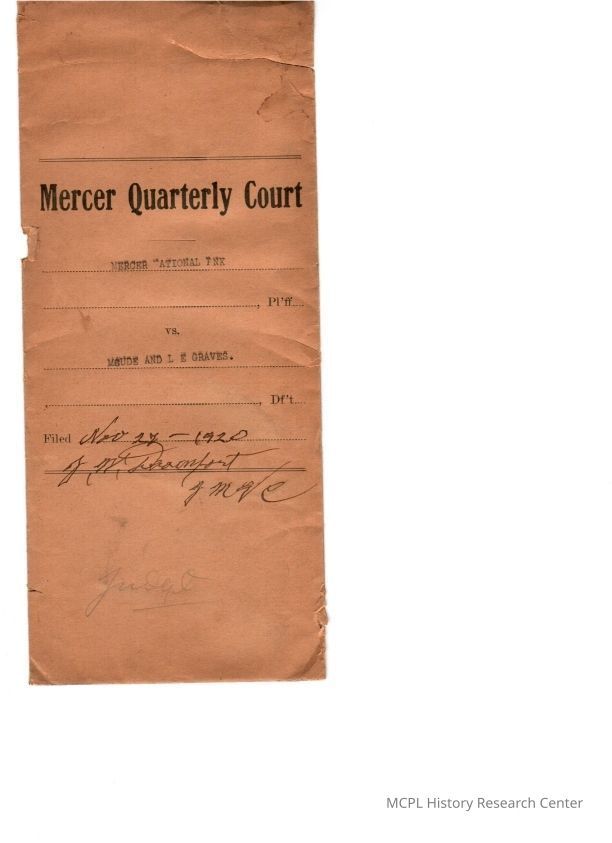 Mercer Quarterly Court
MERCER ATIONAL
, Pl'ff
vs.
AND L E GRAVES.
, Df't
Filed Nov 27 - 1920
J. W. Davenport
J M Q C
Judge
MCPL History Research Center